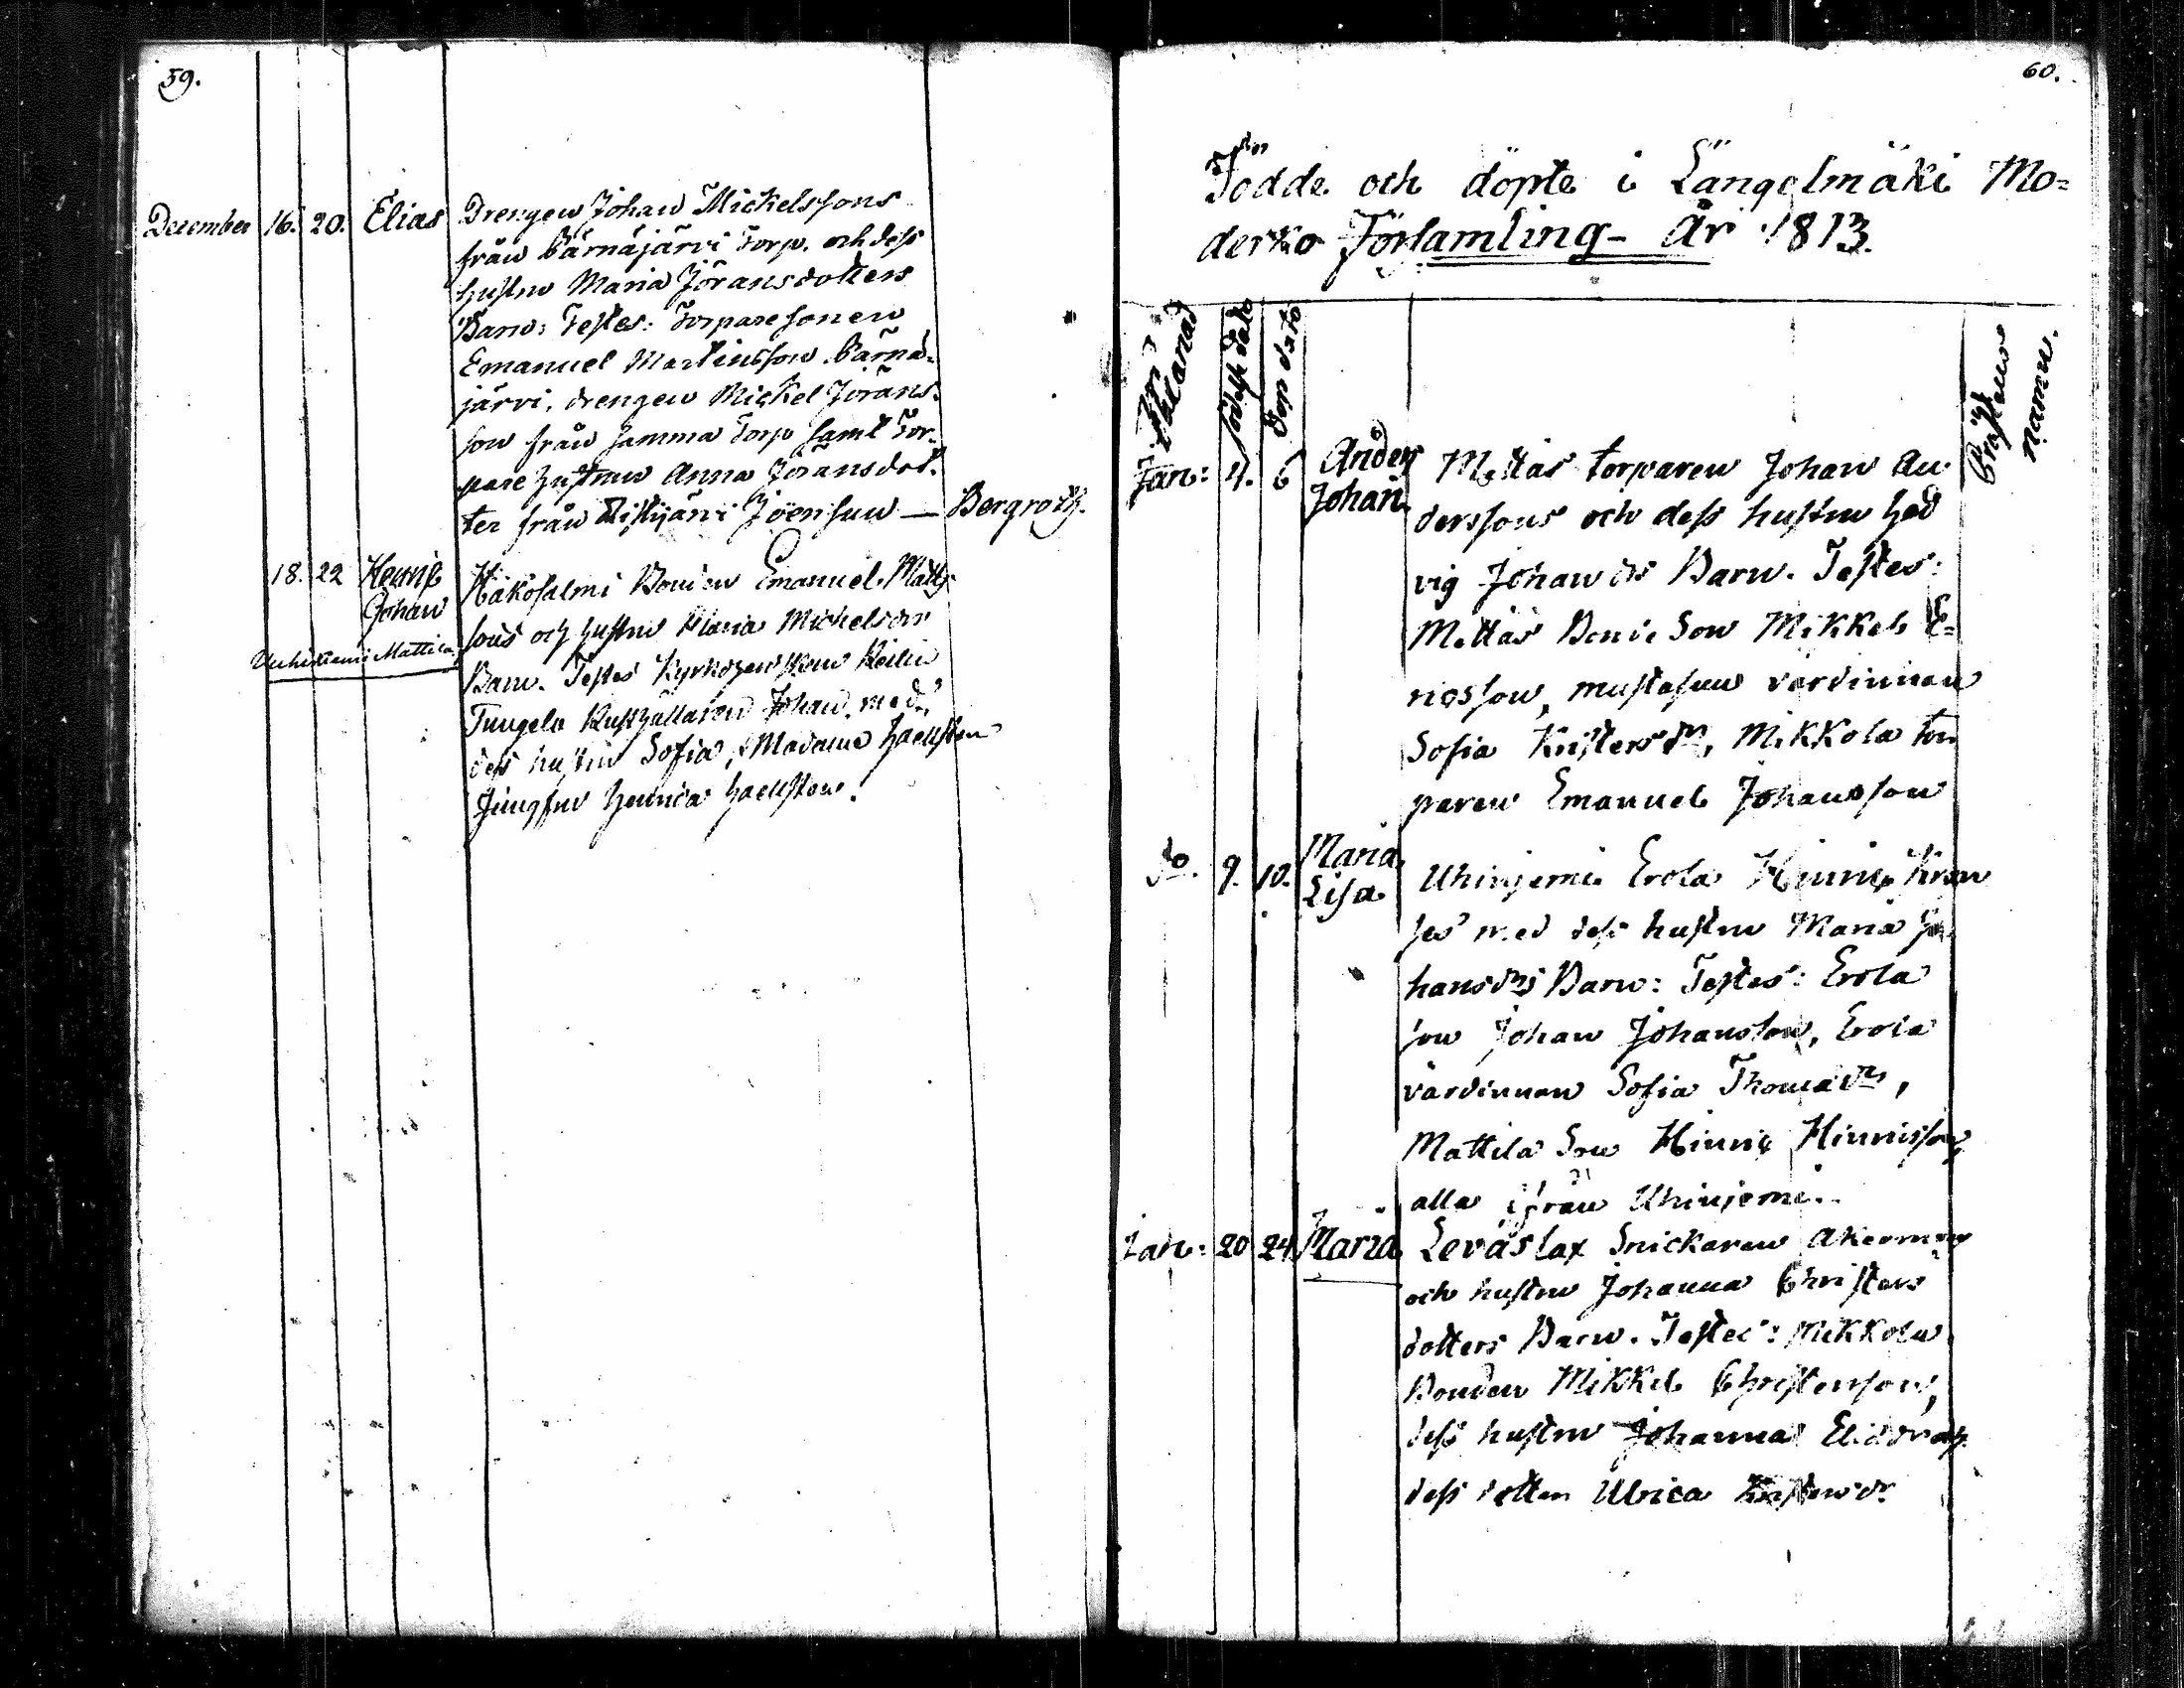 59.
December 16. 20. Elias Drengen Johan Mickelssons
från Särnäjärvi Torp. och dess
hustru Maria Jöransdotters
Barn: Testes: Torpare sonen
Emanuel Martinsson Särnä-
järvi, drengen Mickel Jörans-
son från samma Torp samt Tor-
pare hustrun Anna Jöransdot-
ter från Jöensuu — Bergroth.
18. 22 Henric Johan Häkösalmi Bonden Emanuel Matts
sons och hustru Maria Michelsdrs
Barn. Testes Kyrkoherden
Rusthållaren Johan med
dess hustru Sofia, Madame Hællsten
Jungfru Henrica Hællsten.
60.
Födde och döpte i Längelmäki Mo=
derko Församling - År 1813.
Månad födelse dato Dop dato Prestens namn.
Jan: 4. 6 Anders Johan Mattas torparen Johan An
derssons och dess hustru Hed
vig Johans drs Barn. Testes:
Mattas Bonde Son Mikkel E=
ricsson, mustasuu värdinnan
Sofia Kristersdr, Mikkola tor
paren Emanuel Johansson
do. 9. 10. Maria Lisa Uhinjemi Erola Hinric
med dess hustru Maria Jo
hansdrs Barn: Testes: Erola
son Johan Johansson, Erola
värdinnan Sofia Thomasdr,
Mattila Son Hinric Hinricsson,
alla ifrån Uhinjemi.
Jan: 20 24 Maria Leväslax Snickaren Akerman
och hustru Johanna Christers
dotters Barn. Testes: Mikkola
Bonden Mikkel Christersson,
dess hustru Johanna
dess dotter Ulrica Kristersdr